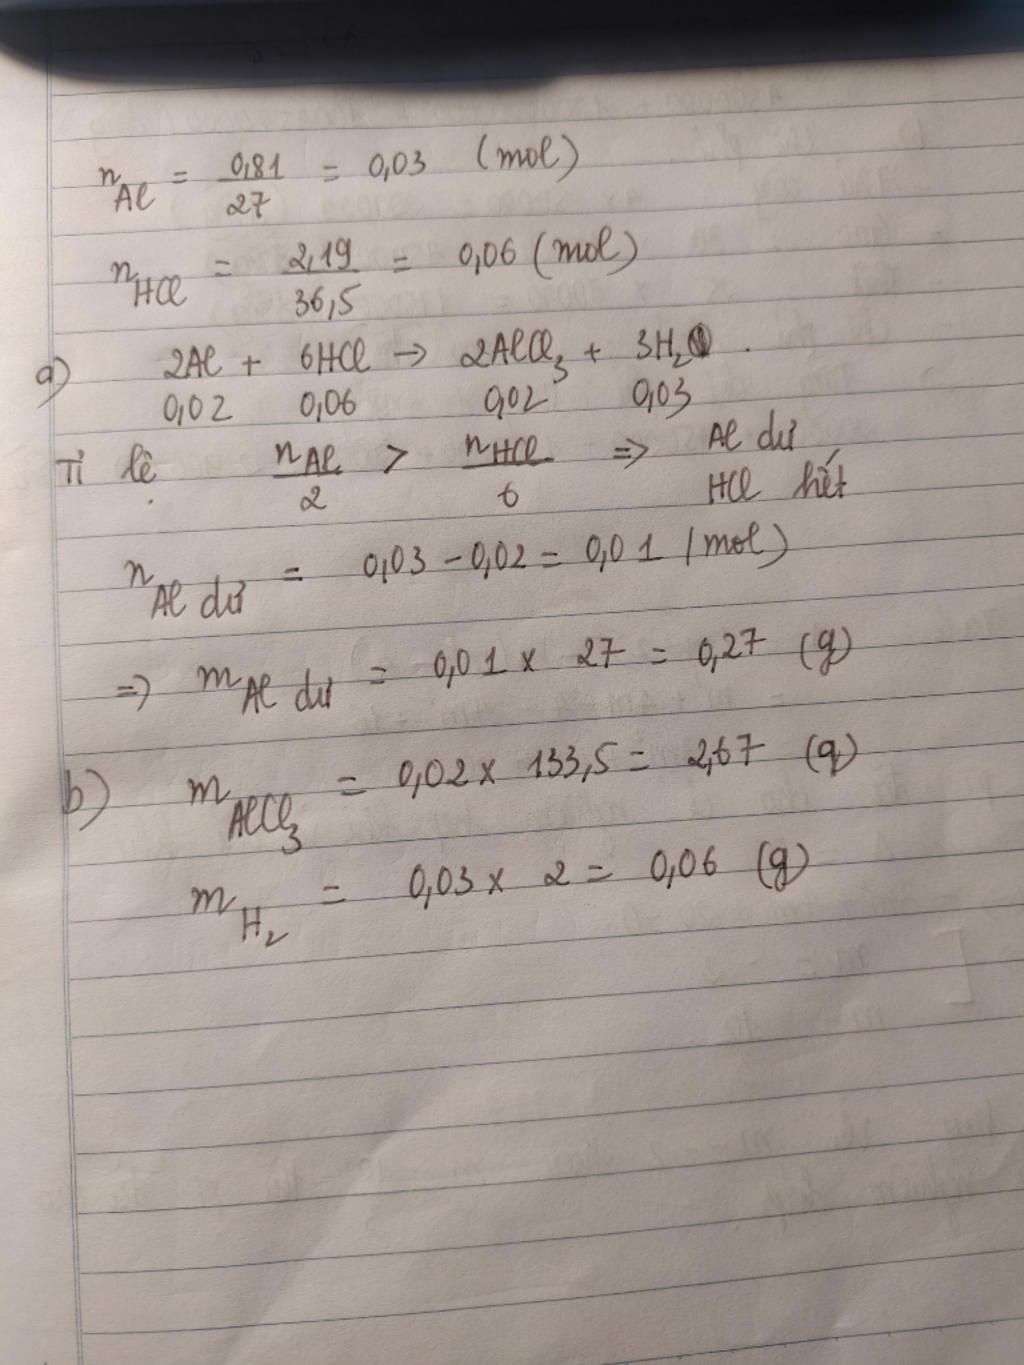 n_Al = 0,81/27 = 0,03 (mol)
n_HCl = 2,19/36,5 = 0,06 (mol)
a) 2Al + 6HCl → 2AlCl₃ + 3H₂ .
0,02 0,06 0,02 0,03
Tỉ lệ n_Al/2 > n_HCl/6 => Al dư
HCl hết
n_Al dư = 0,03 - 0,02 = 0,01 (mol)
=> m_Al dư = 0,01 x 27 = 0,27 (g)
b) m_AlCl₃ = 0,02 x 133,5 = 2,67 (g)
m_H₂ = 0,03 x 2 = 0,06 (g)